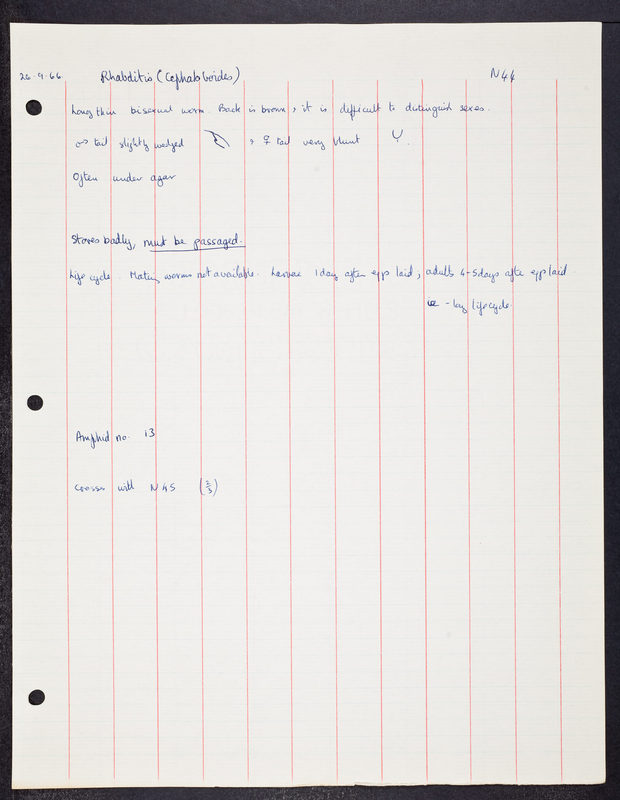 26.9.66 Rhabditis (Cephaloboides) N44
Long thin bisexual worm. Back is brown, it is difficult to distinguish sexes.
♂ tail slightly wedged , ♀ tail very blunt .
Often under agar
Stores badly, must be passaged.
Life cycle. Mating worms not available. Larvae 1 day after eggs laid, adults 4-5 days after egg laid
ie - long life cycle
Amphid no. 13
Crosses with N45 (2/3)